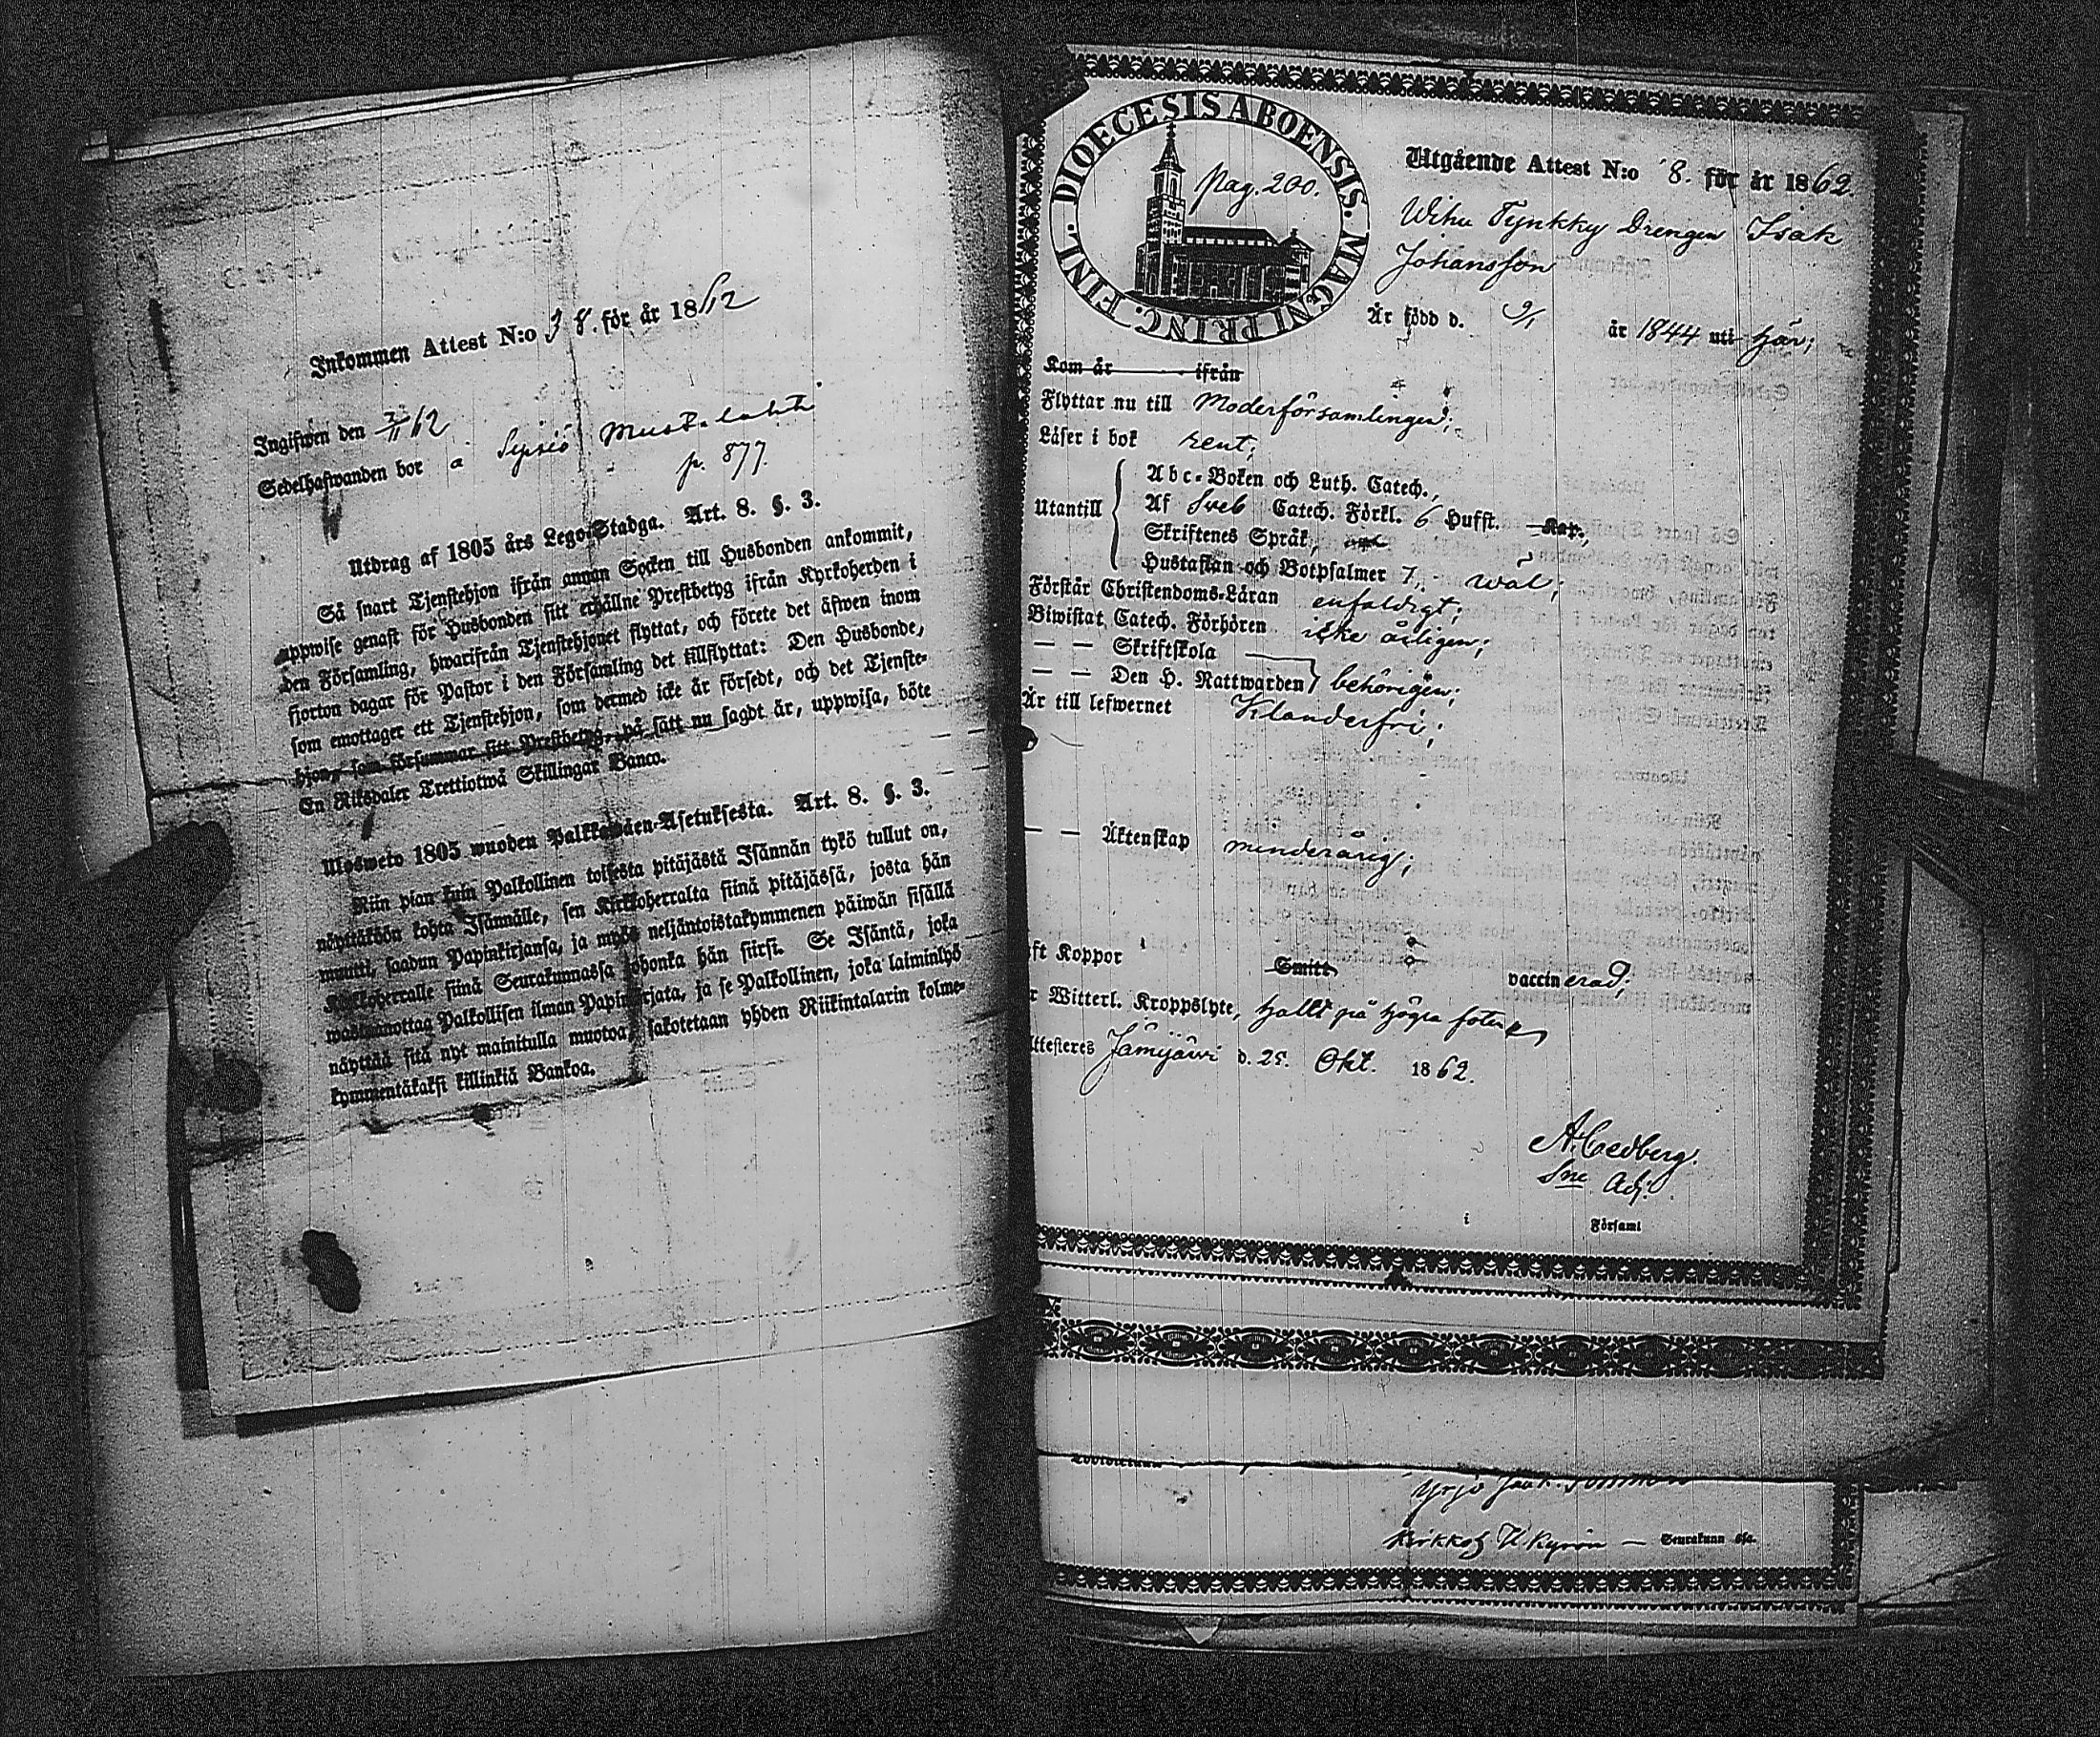 Inkommen Attest N:o 38. för år 1862
Ingifwen den 7/11 62
Sedelhafwanden bor å Sipsiö Mustalahti
p. 877.
Utdrag af 1805 års Lego-Stadga. Art. 8. §. 3.
Så snart Tjenstehjon ifrån annan Socken till Husbonden ankommit,
uppwise genast för Husbonden sitt erhållne Prestbetyg ifrån Kyrkoherden i
den Församling, hwarifrån Tjenstehjonet flyttat, och förete det äfwen inom
fjorton dagar för Pastor i den Församling det tillflyttat: Den Husbonde,
som emottager ett Tjenstehjon, som dermed icke är försedt, och det Tjenste-
hjon, som försummar sitt Prestbetyg, på sätt nu sagdt är, uppwisa, böte
En Riksdaler Trettiotwå Skillingar Banco.
Ulosweto 1805 wuoden Palkkawäen-Asetuksesta. Art. 8. §. 3.
Niin pian kuin Palkollinen toisesta pitäjästä Isännän tykö tullut on,
näyttäköön kohta Isännälle, sen Kirkkoherralta siinä pitäjässä, josta hän
muutti, saadun Papinkirjansa, ja myös neljäntoistakymmenen päiwän sisällä
Kirkkoherralle siinä Seurakunnassa johonka hän siirsi. Se Isäntä, joka
wastaanottaa Palkollisen ilman Papinkirjata, ja se Palkollinen, joka laiminlyö
näyttää sitä nyt mainitulla muotoa, sakotetaan yhden Riikintalarin kolme-
kymmentäkaksi killinkiä Bankoa.
DIOECESIS ABOENSIS. MAGNI PRINC. FINL.
pag. 200.
Utgående Attest N:o 8. för år 1862.
Wihu Tynkky Drengen Isak
Johansson
Är född d. 9/1 år 1844 uti här;
Kom år ifrån
Flyttar nu till Moderförsamlingen;
Läser i bok rent;
Utantill
Abc-Boken och Luth. Catech.,
Af Sveb Catech. Förkl. 6 Hufst. Kap.,
Skriftenes Språk,
Hustaflan och Botpsalmer 7, wäl;
Förstår Christendoms-Läran enfaldigt;
Biwistat Catech. Förhören icke årligen;
— — Skriftskola
— — Den H. Nattwarden behörigen;
Är till lefwernet Klanderfri;
— — Äktenskap minderårig;
ft Koppor Smitt vaccinerad;
r Witterl. Kroppslyte, hallt på högra foten
ttesteres Jämijärvi d. 25. Okt. 1862.
A. Cedberg.
Sne Adj.
i Församl
Yrjö
Kirkkoh H.Kyrön — Seurakunn ssa.